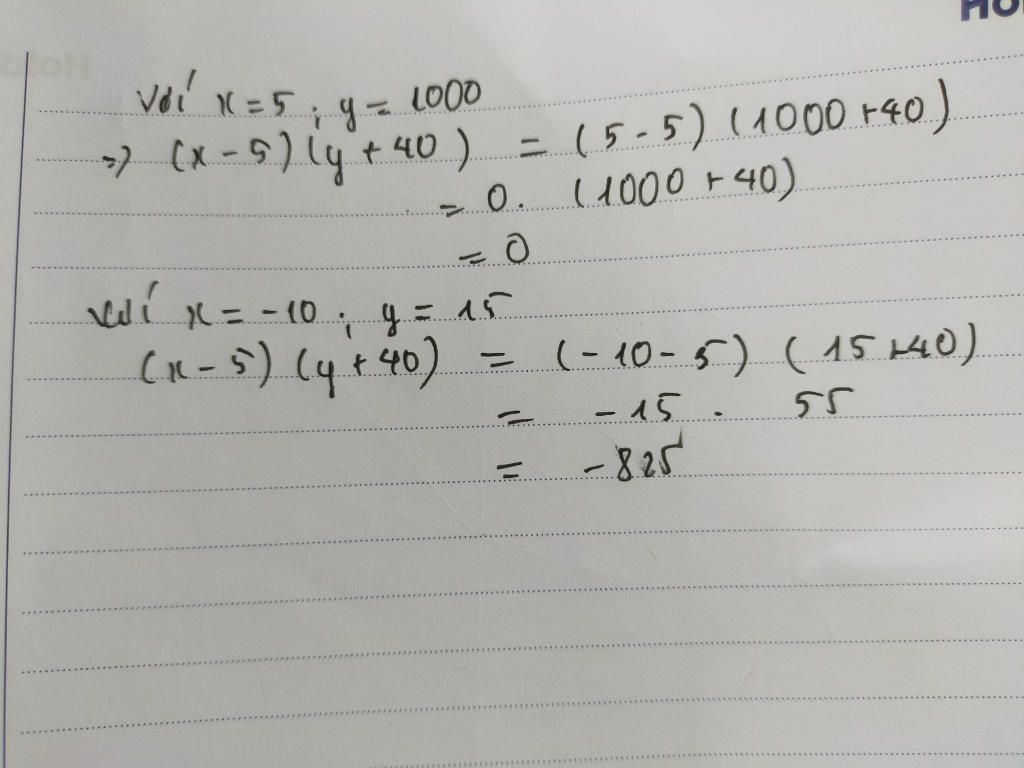 Với x = 5 ; y = 1000
=> (x - 5) (y + 40) = (5 - 5) (1000 + 40)
= 0 . (1000 + 40)
= 0
với x = -10 ; y = 15
(x - 5) (y + 40) = (-10 - 5) (15 + 40)
= -15 . 55
= -825